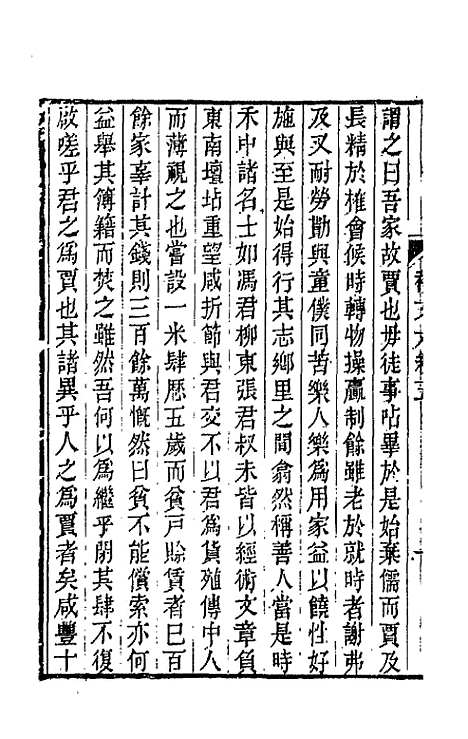 謂之曰吾家故賈也毋徒事呫畢於是始棄儒而賈及
長精於榷會候時轉物操贏制餘雖老於就時者謝弗
及又耐勞勩與童僕同苦樂人樂為用家益以饒性好
施與至是始得行其志鄉里之間翕然稱善人當是時
禾中諸名士如馮君柳東張君叔未皆以經術文章負
東南壇坫重望咸折節與君交不以君為貨殖傳中人
而薄視之也嘗設一米肆歷五歲而貧戶賒賃者已百
餘家辜計其錢則三百餘萬慨然曰貧不能償索亦何
益舉其簿籍而焚之雖然吾何以為繼乎閉其肆不復
啟嗟乎君之為賈也其諸異乎人之為賈者矣咸豐十